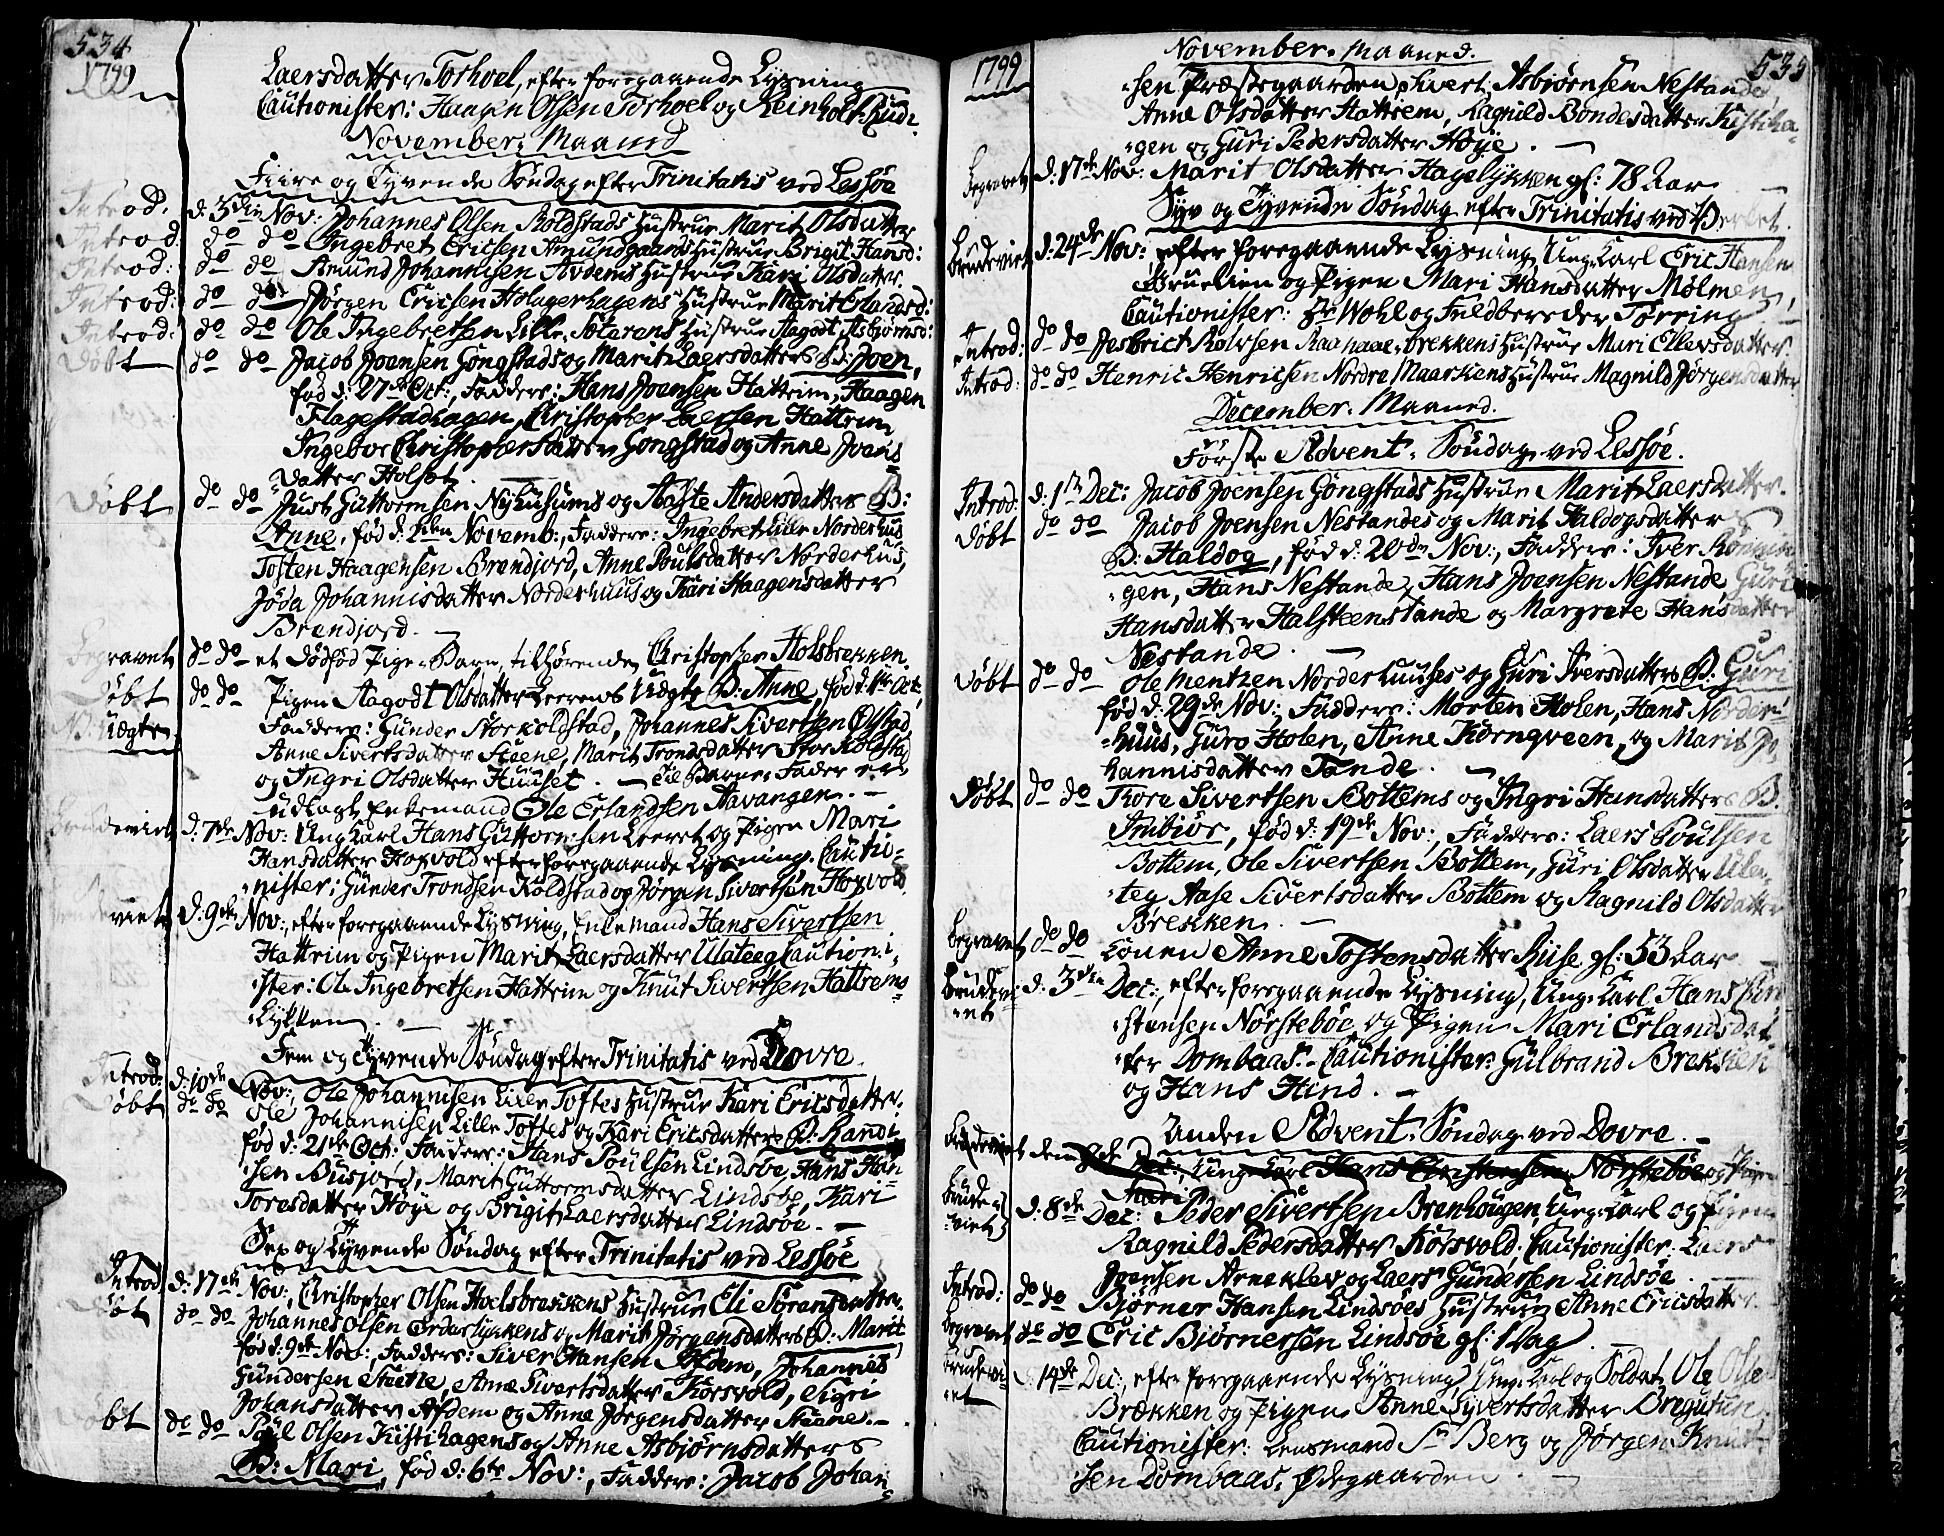 534
1799
Laersdatter Torhoel, efter foregaaende Lysning
Cautionister: Haagen Olsen Torhoel og Reinholt
November. Maaned
Fiire og Tyvende Søndag efter Trinitatis ved Lessøe
Introd. d: 3die Nov: Johannes Olsen Koldstads Hustrue Marit Olsdatter
Introd: do do Ingebret Ericsen Amundgaards Hustrue Brigit Hansd:
Introd: do do Amund Johannisen Avdems Hustrue Kari Olsdatter.
Introd: do do Jørgen Ericsen Holagerhagens Hustrue Marit Erlandsd:
Introd: do do Ole Ingebretsen Lille Hustrue Aagodt Asbjørnsd:
Døbt do do Jacob Joensen Gongstads og Marit Laersdatters B: Joen,
fød d: 27de Oct:, Faddere: Hans Joensen Hattrim, Haagen
Flagestadhagen, Christopher Laersen Hattrim
Ingebor Christophersdatter Gongstad og Anne Joens
datter Holset.
Døbt do do Just Guttormsen Nyhusums og Aaste Andersdatters B:
Anne, fød d: Novemb:, Faddere: Ingebret Lille Norderhuus
Tosten Haagensen Brendjord, Anne Poulsdatter Norderhuus,
Jøda Johannisdatter Norderhuus og Kari Haagensdatter
Brendjord.
Begravet do do et dødfød Pige-Barn, tilhørende Christopher Holsbrekken.
Døbt do do Pigen Aagodt Olsdatter Leerens Uægte B: Anne, fød d: Oct:
B: Uægte. Faddere: Gunder Storkoldstad, Johannes Sivertsen
Anne Sivertsdatter Steene, Marit Trondsdatter Stor Koldstad
og Ingri Olsdatter Huuset. – Til Barne-Fader er
udlagt Enkemand Ole Erlandsen Aavangen. –
Brudeviet d: 7de Nov: Ung-Karl Hans Guttormsen Leeret og Pigen Mari
Hansdatter Hoxvold efter foregaaende Lysning. Cautio-
nister: Gunder Trondsen Koldstad og Jørgen Sivertsen Hoxvold
viet d: 9de Nov:, efter foregaaende Lysning, Enkemand Hans Sivertsen
Hattrim og Pigen Marit Laersdatter Ulateeg Cautioni-
ster: Ole Ingebretsen Hattrim og Knut Sivertsen Hattrems-
Lykken.
Fem og Tyvende Søndag efter Trinitatis ved Dovre.
Introd: d: 10de Nov:, Ole Johannisen Lille Toftes Hustrue Kari Ericsdatter.
Døbt do do Ole Johannisen Lille Toftes og Kari Ericsdatters B: Randi
fød d: 21de Oct: Faddere: Hans Poulsen Lindsøe, Hans Han-
sen Busjord, Marit Guttormsdatter Lindsøe, Kari
Toresdatter Høye og Brigit Laersdatter Lindsøe. –
Sex og Tyvende Søndag efter Trinitatis ved Lessøe
Introd d: 17de Nov:, Christopher Olsen Hoelsbrekkens Hustrue Eli Sørensdatter.
Døbt do do Johannes Olsen og Marit Jørgensdatters B: Marit
fød d: 9de Nov:, Faddere: Siver Hansen Afdem, Johannis
Gundersen Steene, Anne Sivertsdatter Korsvold, Sigri
Johansdatter Afdem og Anne Jørgensdatter Steene. –
Døbt do do Poul Olsen Kistihagens og Anne Asbjørnsdatters
B: Mari, fød d: 6te Nov:, Faddere: Jacob Johan-
1799
November. Maaned.
535
sen Præstegaarden, Sivert Asbiørnsen Nestande,
Anne Olsdatter Hattrem, Ragnild Bondesdatter Kistiha-
gen og Guri Pedersdatter Høye. –
Begravet d: 17de Nov: Marit Olsdatter Hagelykken gl: 78 Aar –
Syv og Tyvende Søndag efter Trinitatis ved
Brudeviet d: 24de Nov: efter foregaaende Lysning, Ung-Karl Eric Hansen
Bruelien og Pigen Mari Hansdatter Mølmen,
Cautionister: Hr Wohl og Fuldbereder Tørring
Introd: do do Jesbrict Rolvsen brekkens Hustrue Mari Ellevsdatter.
Introd: do do Henric Henricsen Nordre Hustrue Magnild Jørgensdatter
December. Maaned.
Første Advent. Søndag ved Lessøe.
Introd: d: 1ste Dec: Jacob Joensen Gongstads Hustrue Marit Laersdatter.
Døbt do do Jacob Joensen Nestandes og Marit Haldogsdatter
B: Haldog, fød d: 20de Nov:, Faddere: Iver
gen, Hans Nestande, Hans Joensen Nestande, Guri
Hansdatter Halsteenstande og Margrete Hansdatter
Nestande. –
Døbt do do Ole Mentzen Norderhuuses og Guri Iversdatters B: Guri
fød d: 29de Nov:, Faddere: Morten Holen, Hans Norder-
huus, Guro Holen, Anne Kornqveen, og Marit Jo-
hannisdatter Tande. –
Døbt do do Tore Sivertsen Bottems og Ingri Hansdatters B.
Imbiør, fød d: 19de Nov:, Faddere: Laers Poulsen
Bottem, Ole Sivertsen Bottem, Guri Olsdatter Ula-
teg Aase Sivertsdatter Bottem og Ragnild Olsdatter
Brekken. –
Begravet do do Konen Anne Tostensdatter Riise gl: 53 Aar –
Brudevi-et d: 3die Dec:, efter foregaaende Lysning, Ung-Karl Hans
stensen Nørsteböe og Pigen Mari Erlandsdat-
ter Dombaas. Cautionister: Gulbrand Brekken
og Hans Hind. –
Anden Advent. Søndag ved Dovre. –
Brudeviet Dec:, Ung-Karl Hans Christensen Nørstebøe og
Brude-viet d: 8de Dec: Peder Sivertsen Brenhougen, Ung-Karl og Pigen
Ragnild Pedersdatter Korsvold, Cautionister: Laers
Joensen Arneklev og Laers Gundersen Lindsøe. –
Introd: do do Bjørner Hansen Lindsøes Hustrue Anne Ericsdatter.
Begravet do do Eric Biørnersen Lindsøe gl: 1 Dag
Brudevi-et d: 14de Dec:, efter foregaaende Lysning, Ung-Karl og Soldat Ole Ole
Brækken og Pigen Anne Syvertsdatter
Cautionister: Lensmand Sr Berg og Jørgen Knut-
sen Dombaas, Ødegaarden. –